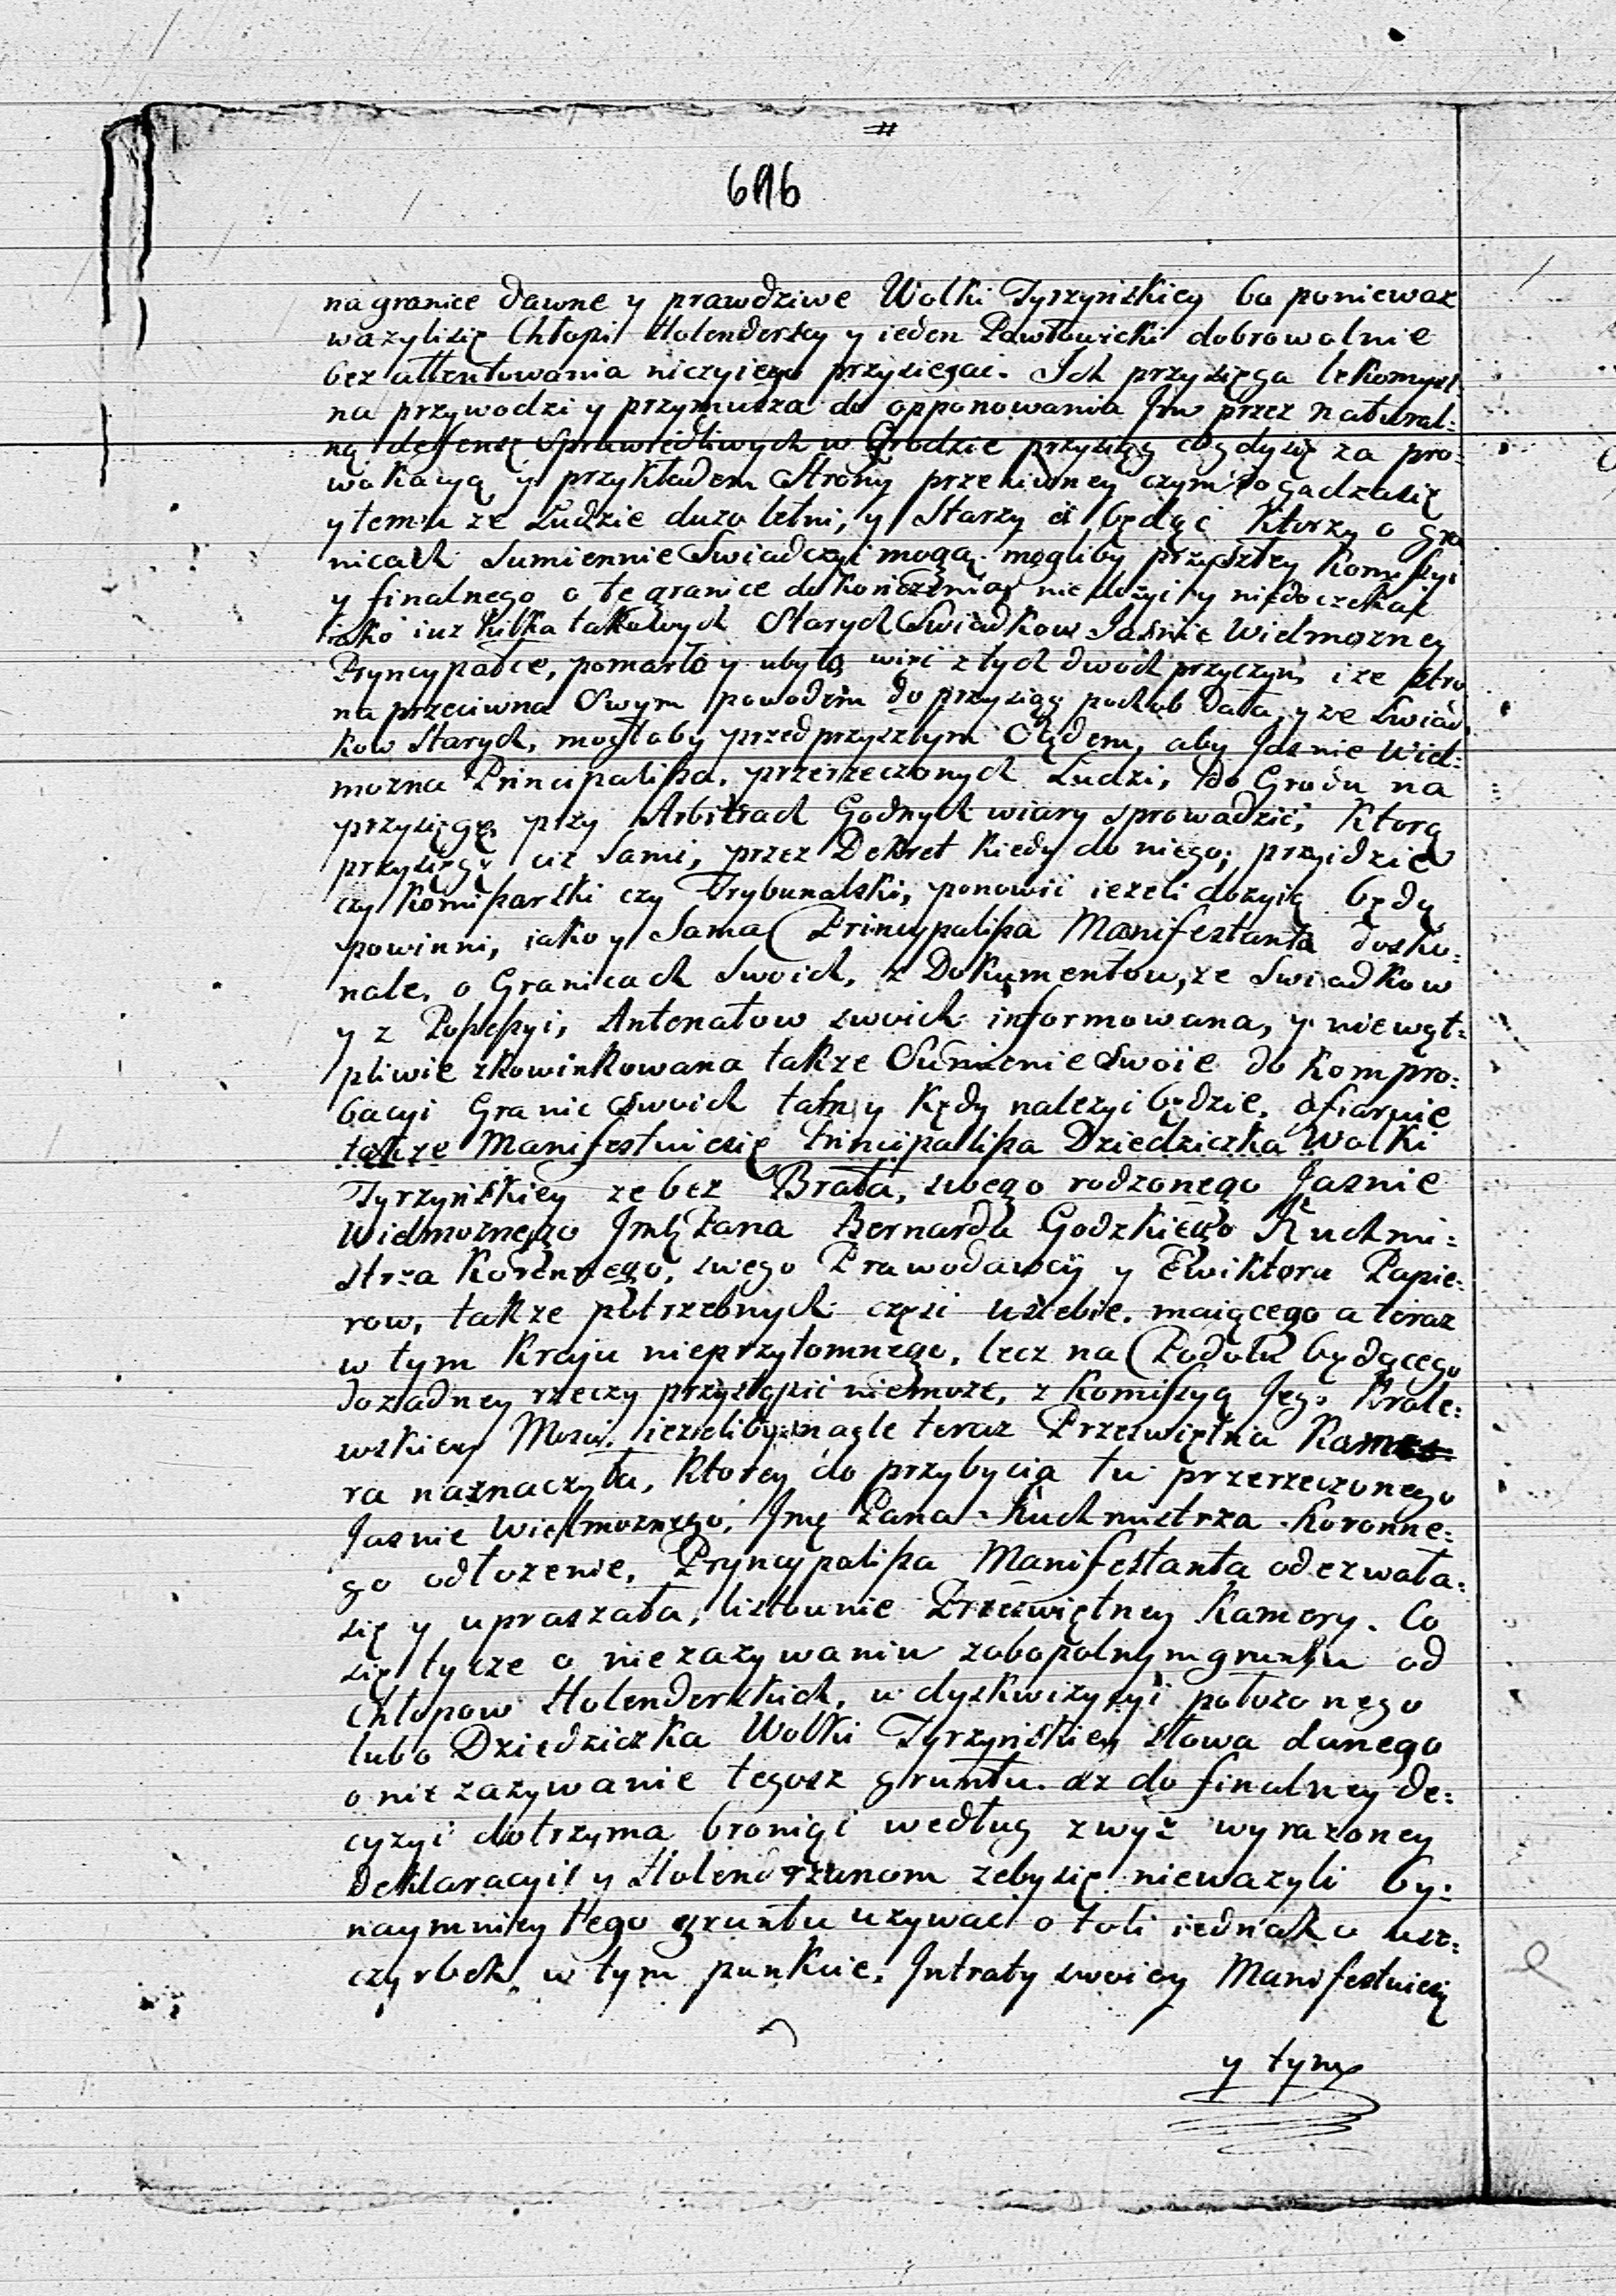 #
696
na granice dawne y prawdziwe Wolki Tyrzyńskiey bo poniewaz
wazylisię Chłopi Holenderscy y ieden Pawłowicki dobrowolnie
bez attentowania niczyiego przysiegać. Ich przysięga lekomysl:
na przywodzi y przymusza do opponowania Jm przez natural:
ną deffensę Sprawiedliwych w Grodzie przysiąg ato gdysię za pro:
wokacyą y przykładem Strony przeciwney czym
y temu ze Ludzie duzo letni, y Starzy ci będąc Ktorzy o gra
nicach Sumiennie Swiadczyć mogą mogliby przyszłey Komißyi
y finalnego o te granice dokończenia niedożyć y niedoczekać
iako iuz kilka takowych Starych Swiadkow Jaśnie Wielmozney
Pryncypałce, pomarło y ubyło, więc z tych dwoch przyczyn, i ze stro
na przeciwna Swym powodem do przysiąg pochob dała, y ze Swiad
kow Starych, mogłaby przed przyszłym Sądem, aby Jasnie Wiel:
mozna Principalißa, przerzeczonych Ludzi, do Grodu na
przysięgę, przy Arbitrach Godnych wiary sprowadzić, Ktorą
przysięgę ciz Sami, przez Dekret Kiedy do niego, przyidzie
czy Komißarski czy Trybunalski, ponowić iezeli dozyią będą
powinni, iako y Sama Principalißa Manifestanta dosko:
nale, o Granicach Swoich, z Dokumentow, ze Swiadkow
y z Poßeßyi, Antenatow swoich informowana, y niewąt:
pliwie zkowinkowana także Sumienie Swoie do Kompro:
bacyi Granic Swoich tam y Kędy nalezyć będzie, ofiaruie
takze Manifestuiesię Principalißa Dziedziczka Wolki
Tyrzyńskiey ze bez Brata, swego rodzonego Jasnie
Wielmoznego Jmę Pana Bernarda Godzkiego Kuchmi:
strza Koronnego, swego Prawodawcy y Ewiktora Papie:
row, takze potrzebnych częsi u siebie, maiącego a teraz
w tym Kraju nieprzytomnego, lecz na Podolu będącego
do zadney rzeczy przystąpić niemoze, z Komißyą Jego Krole:
wskiey Mosci, iezeliby nagle teraz Przeswiętna Kame
ra naznaczyła, Ktorey do przybycia tu przerzeczonego
Jasnie Wielmoznego, Jmę Pana Kuchmistrza Koronne:
go odłozenie, Pryncypalißa Manifestanta odezwała:
się y upraszała, listownie Przeswiętney Kamery. Co
się tycze o niezazywaniu zobopolnym gruntu od
Chłopow Holenderskich, w dyskwizycyi połozonego
lubo Dziedziczka Wolki Tyrzyńskiey słowa danego
o nie zazywanie tegosz gruntu az do finalney de:
cyzyi dotrzyma broniąc według zwyż wyrazoney
Deklaracyi y Holendrzanom zebysię niewazyli by:
naymniey tego gruntu uzywać o toli iednak o usz:
czyrbek w tym punkcie, Intraty swoiey Manifestuiesię
y tym